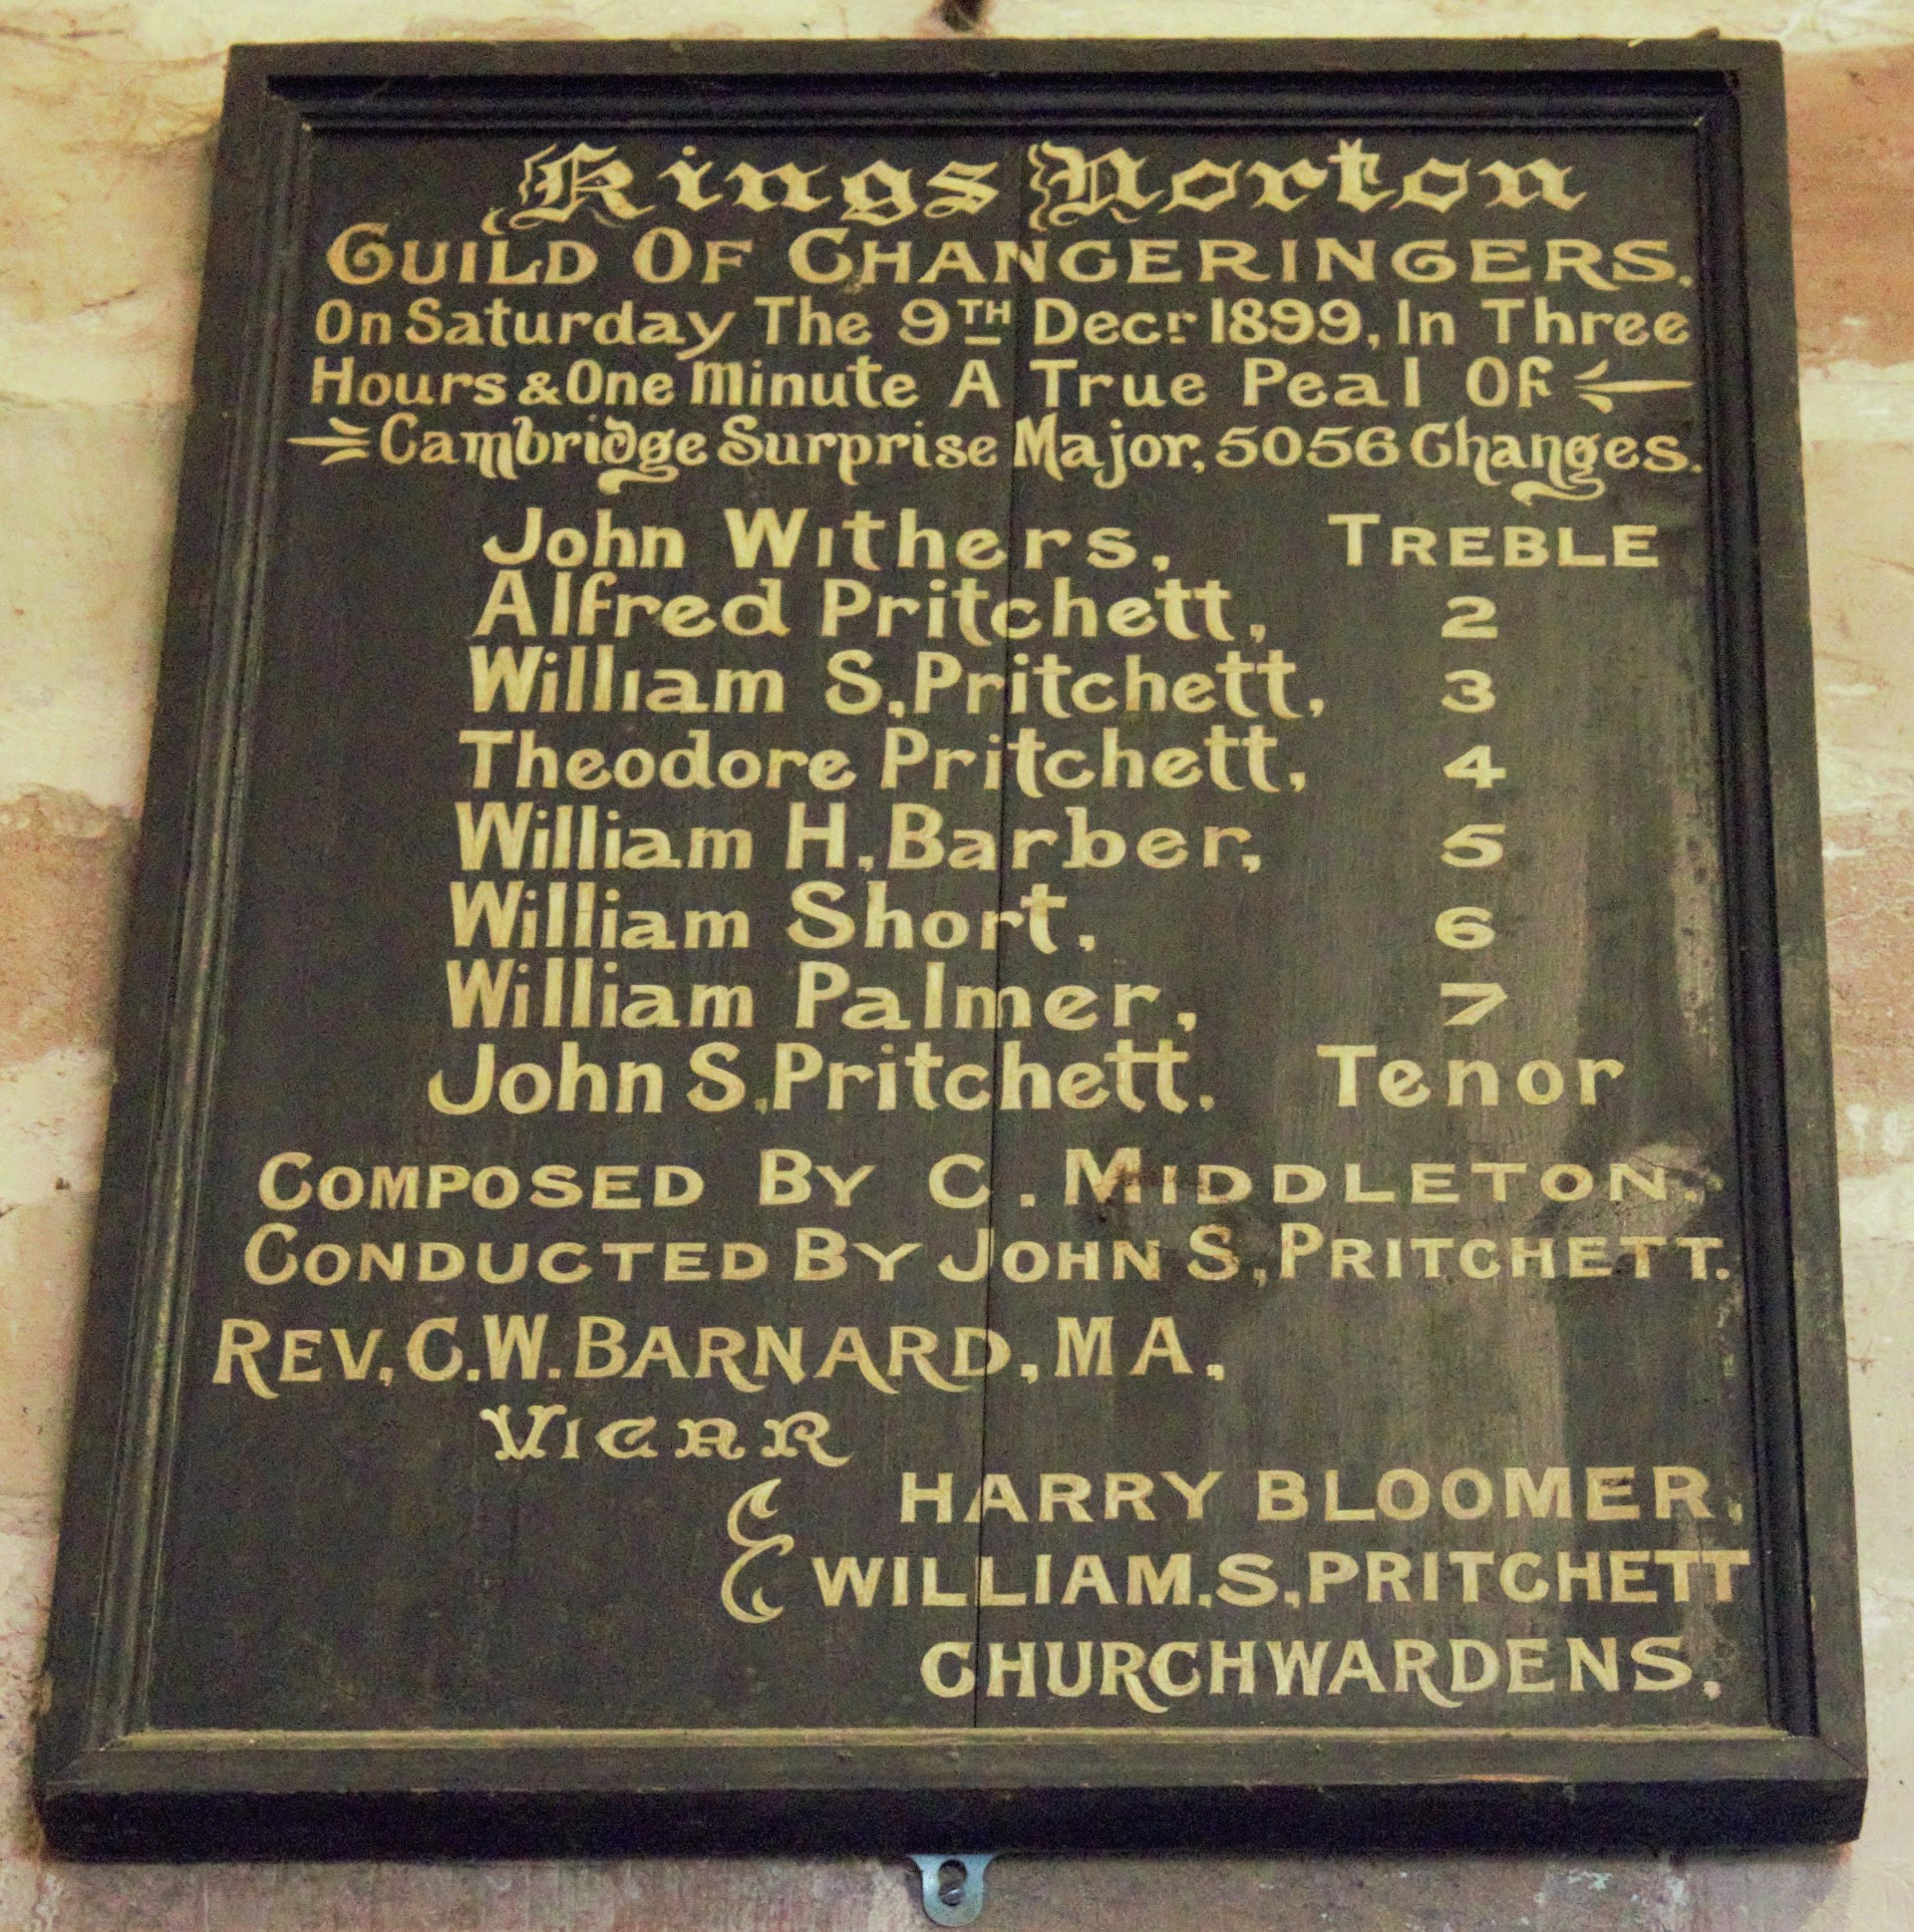 Kings Norton
GUILD OF CHANGERINGERS.
On Saturday The 9TH Decr 1899, In Three
Hours & One Minute A True Peal Of
Cambridge Surprise Major, 5056 Changes.
John Withers, TREBLE
Alfred Pritchett, 2
William S. Pritchett, 3
Theodore Pritchett, 4
William H. Barber, 5
William Short, 6
William Palmer, 7
John S. Pritchett. Tenor
COMPOSED BY C. MIDDLETON.
CONDUCTED BY JOHN S. PRITCHETT.
REV. C.W. BARNARD, MA,
VICAR
HARRY BLOOMER,
WILLIAM. S. PRITCHETT
CHURCHWARDENS.